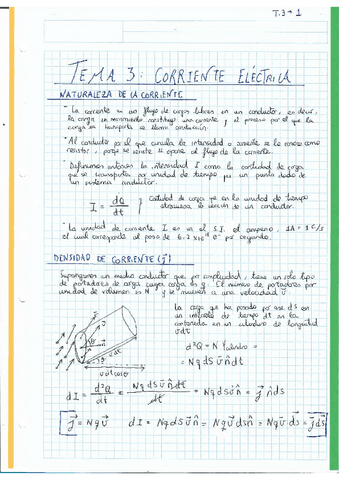 T.3 → 1
TEMA 3: CORRIENTE ELÉCTRICA
NATURALEZA DE LA CORRIENTE
· La corriente es un flujo de cargas libres en un conductor, es decir,
la carga en movimiento constituye una corriente y el proceso por el que la
carga se transporta se llama conducción.
· Al conductor por el que circula la intensidad o corriente se le conoce como
resistor, porque se opone al flujo de la corriente.
· Definiremos entonces la intensidad I como la cantidad de carga
que se transporta por unidad de tiempo por un punto dado de
un sistema conductor.
I = dQ/dt
Cantidad de carga que en la unidad de tiempo
atraviesa la sección de un conductor.
· La unidad de corriente I es en el S.I. el amperio, 1A = 1 C/s
el cual corresponde al paso de 6.2 × 10¹⁸ e⁻ por segundo.
DENSIDAD DE CORRIENTE (j⃗)
Supongamos un medio conductor que, por simplicidad, tiene un solo tipo
de portadores de carga cuya carga es q. El número de portadores por
unidad de volumen es N y se mueven a una velocidad v⃗
La carga que ha pasado por ese ds en
un intervalo de tiempo dt es la
contenida en un cilindro de longitud
vdt
d²Q = N q =
= N q ds v⃗ n̂ dt
vdt
vdt cosθ
dI = d²Q/dt = N q ds v⃗ n̂ dt/dt = N q ds v⃗ n̂ = j⃗ n̂ ds
j⃗ = N q v⃗
dI = N q ds v⃗ n̂ = N q v⃗ ds n̂ = N q v⃗ ds⃗ = j⃗ ds⃗